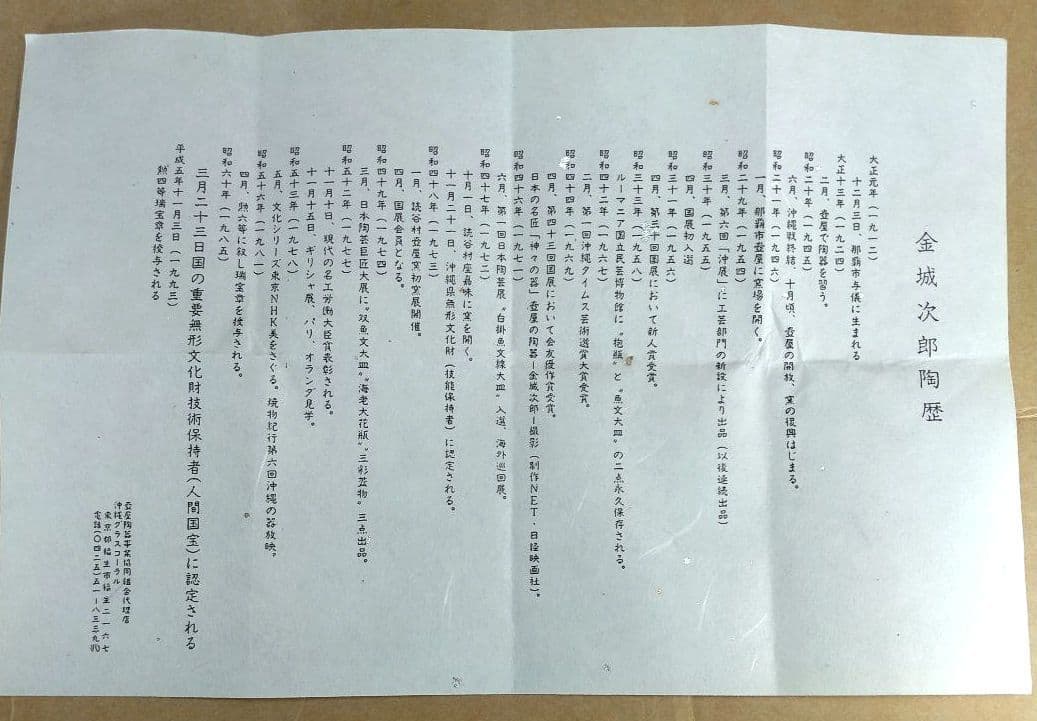 金城次郎陶歴
大正元年(一九一二)
十二月三日、那覇市与儀に生まれる
大正十三年(一九二四)
二月、壺屋で陶器を習う。
昭和二十年(一九四五)
六月、沖縄戦終結、十月頃、壺屋の開放、窯の復興はじまる。
昭和二十一年(一九四六)
一月、那覇市壺屋に窯場を開く。
昭和二十九年(一九五四)
三月、第六回「沖展」に工芸部門の新設により出品(以後連続出品)
昭和三十年(一九五五)
四月、国展初入選
昭和三十一年(一九五六)
四月、第三十回国展において新人賞受賞。
昭和三十三年(一九五八)
ルーマニア国立民芸博物館に〝抱瓶〟と〝魚文大皿〟の二点永久保存される。
昭和四十二年(一九六七)
二月、第一回沖縄タイムス芸術選賞大賞受賞。
昭和四十四年(一九六九)
四月、第四十三回国展において会友優作賞受賞。
日本の名匠「神々の器」壺屋の陶器ー金城次郎ー撮影(制作NET・日経映画社)。
昭和四十六年(一九七一)
六月、第一回日本陶芸展〝白掛魚文線大皿〟入選、海外巡回展。
昭和四十七年(一九七二)
十月一日、読谷村座喜味に窯を開く。
十一月二十一日、沖縄県無形文化財(技能保持者)に認定される。
昭和四十八年(一九七三)
一月、読谷村壺屋窯初窯展開催。
四月、国展会員となる。
昭和四十九年(一九七四)
三月、日本陶芸巨匠大展に〝双魚文大皿〟〝海老大花瓶〟〝三彩蓋物〟三点出品。
昭和五十二年(一九七七)
十一月十日、現代の名工労働大臣賞表彰される。
十一月十五日、ギリシャ展、パリ、オランダ見学。
昭和五十三年(一九七八)
五月、文化シリーズ東京NHK美をさぐる。焼物紀行第六回沖縄の器放映。
昭和五十六年(一九八一)
四月、勲六等に叙し瑞宝章を授与される。
昭和六十年(一九八五)
三月二十三日国の重要無形文化財技術保持者(人間国宝)に認定される
平成五年十一月三日(一九九三)
勲四等瑞宝章を授与される
壺屋陶器事業協同組合代理店
沖縄グラスコーラル
東京都福生市福生二一六七
電話(〇四二五)五一ー八三三九㈹